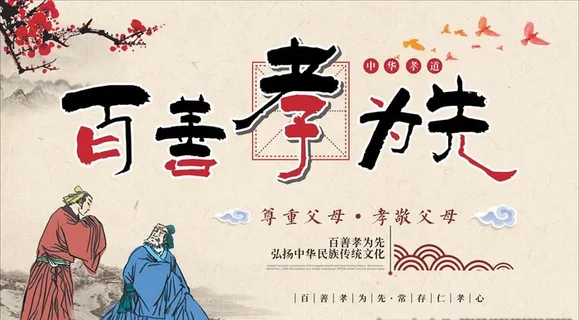 中华孝道
百善孝为先
尊重父母·孝敬父母
百善孝为先
弘扬中华民族传统文化
百善孝为先·常存仁孝心